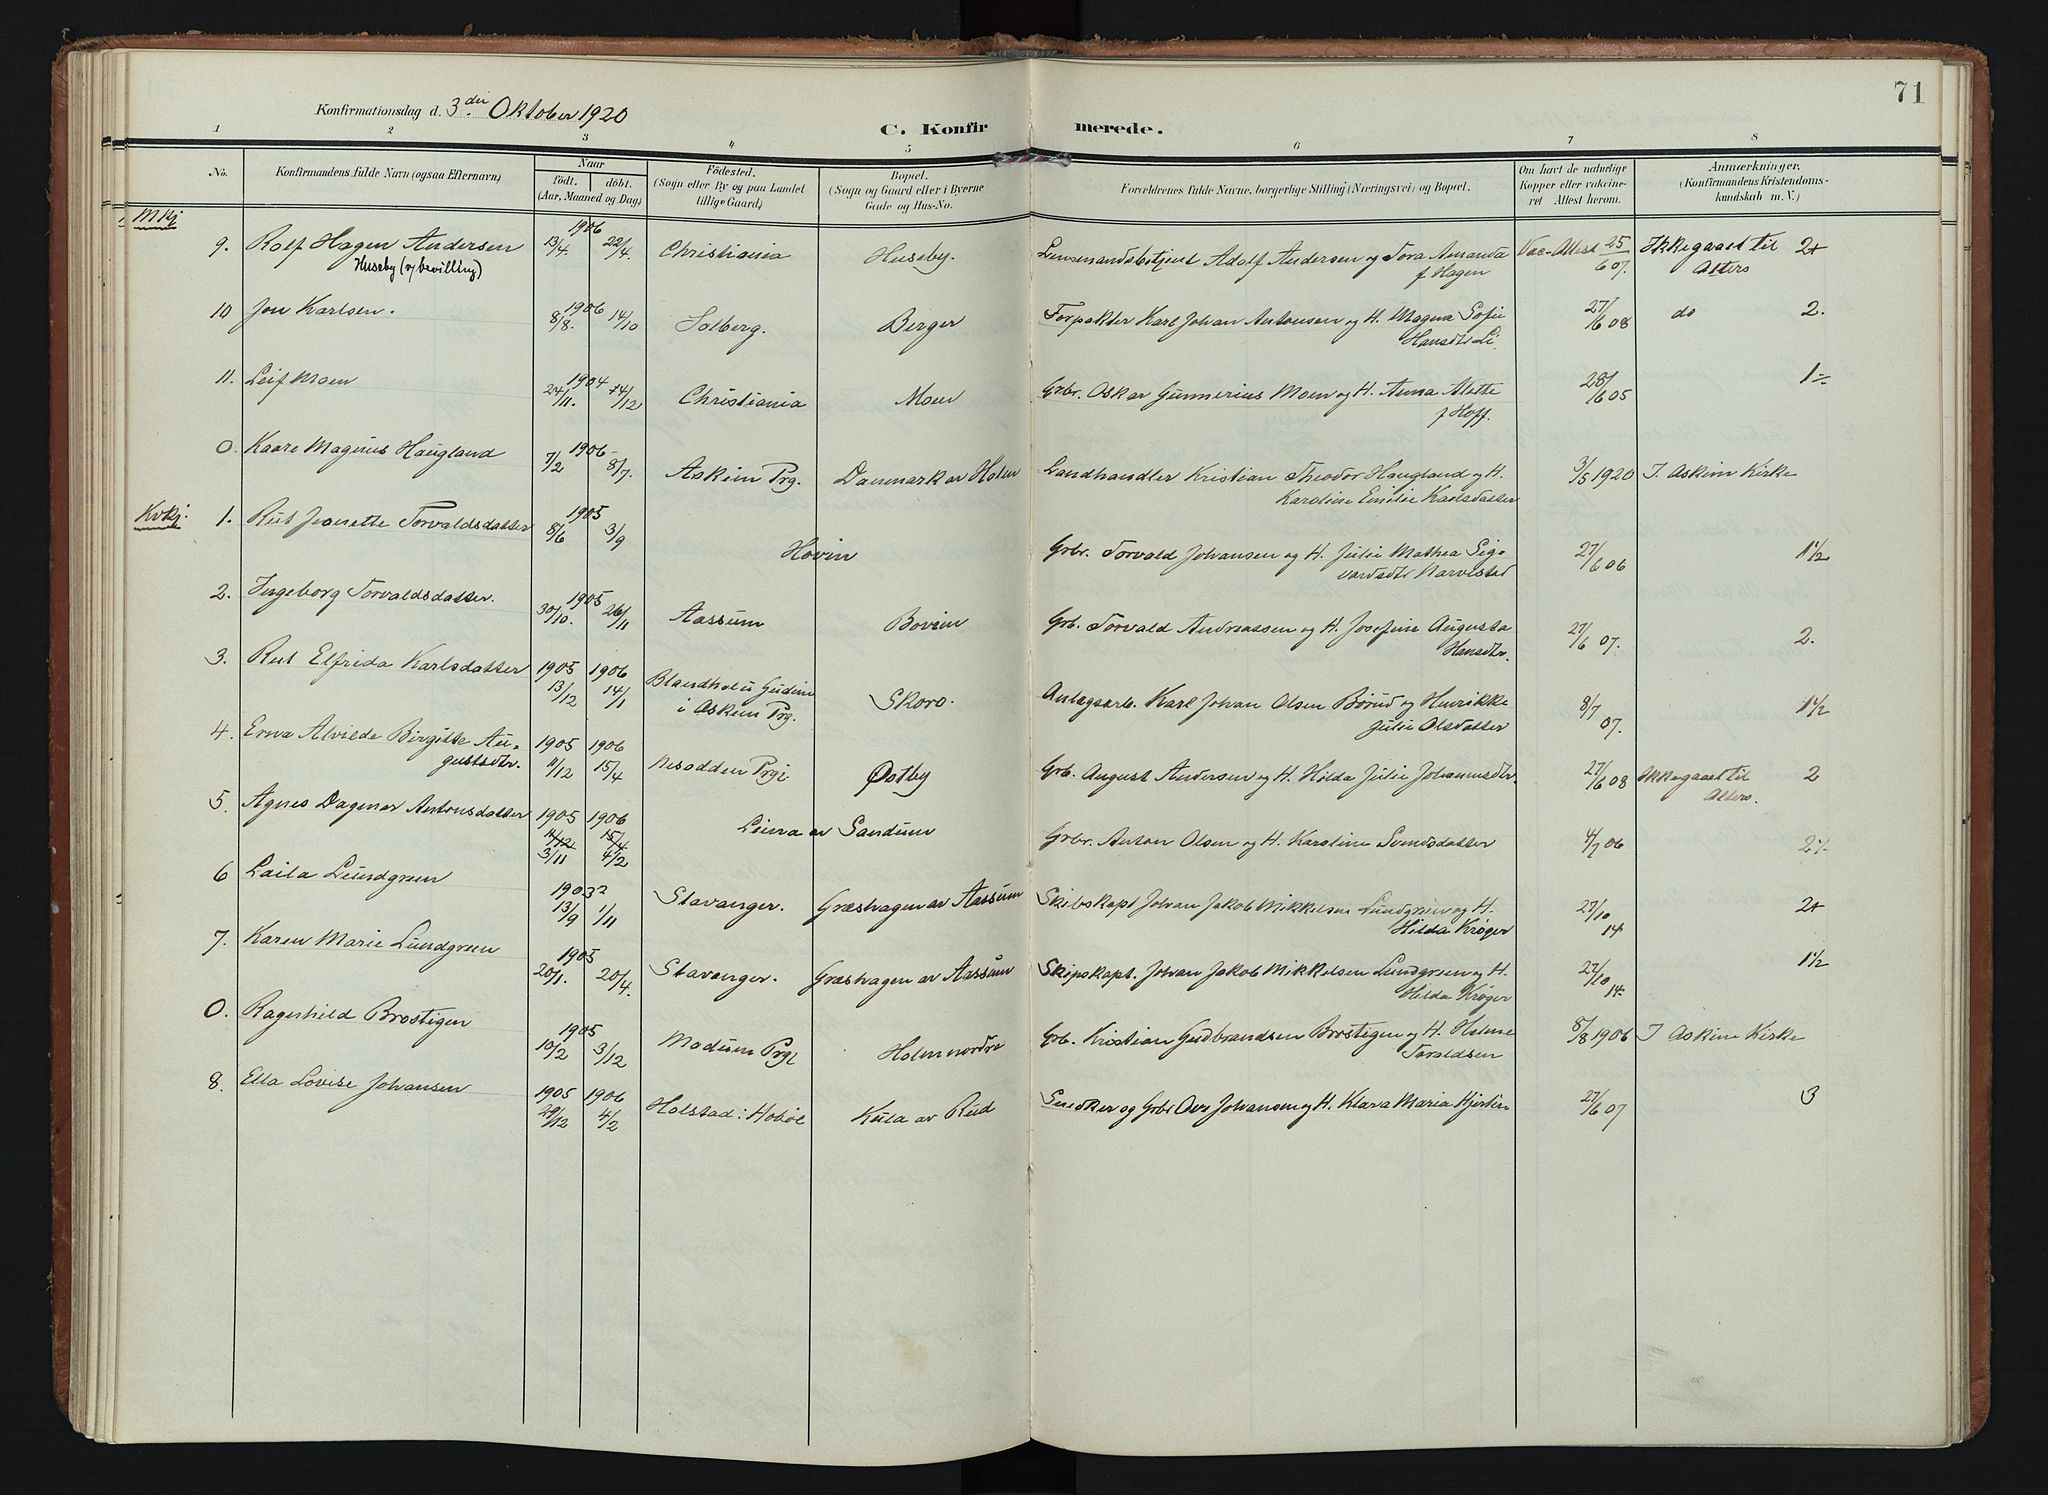 71
Konfirmationsdag d. 3die Oktober 1920
C. Konfirmerede.
1 2 3 4 5 6 7 8
No.
Konfirmandens fulde Navn (ogsaa Efternavn)
Naar
født. døbt.
(Aar, Maaned og Dag)
Fødested.
(Sogn eller By og paa Landet
tillige Gaard)
Bopæl.
(Sogn og Gaard eller i Byerne
Gade og Hus-No.
Forældrenes fulde Navne, borgerlige Stilling (Næringsvei) og Bopæl.
Om havt de naturlige
Kopper eller vakcine-
ret Attest herom.
Anmærkninger.
(Konfirmandens Kristendoms-
kundskab m. V.)
Mkj
9. Rolf Hagen Andersen 1906 13/4. 22/4. Christiania Huseby. Lensmandsbetjent Adolf Andersen og Tora Amanda Vac-Attest 25/6 07. Ikke gaaet til 2+
Huseby (v/bevilling) f Hagen Alters
10 Jon Karlsen. 1906 8/8. 14/10 Solberg. Berger Forpakter Karl Johan Antonsen og H. Magna Sofie 27/6 08 do 2.
Hansdtr Li.
11. Leif Moen 1904 24/11. 14/12 Christiania Moen Grbr. Oskar Gunnerius Moen og H. Anna Alette 28/6 05 1÷
f Hoff.
0. Kaare Magnus Haugland 1906 7/2 8/7. Askim Prg. Danmark av Holm Landhandler Kristian Theodor Haugland og H. 3/5 1920 I Askim Kirke
Karoline Emilie Karlsdatter
Kvkj.
1. Rut Jeanette Torvaldsdatter 1905 8/6 3/9 Hovin Grbr. Torvald Johansen og H. Julie Mathea Sig- 27/6 06 1 1/2
vardsdtr Narvestad
2. Ingeborg Torvaldsdatter. 1905 30/10. 26/11 Aassum Bovim Grb. Torvald Andreassen og H. Josefine Augusta 27/6 07. 2.
Hansdtr.
3. Rut Elfrida Karlsdatter 1905 13/12 1906 14/1 Blandhols Gudim Skoro. Anlagsarb. Karl Johan Olsen Børud og Henrikke 8/7 07. 1 1/2
i Askim Prg. Julie Olsdatter
4. Erna Alvilde Birgitte Au- 1905 11/12 1906 15/4 Nesodden Prgj Østby Grb. August Andersen og H. Hilda Julie Johannesdtr. 27/6 08 Ikke gaaet til 2
gustsdtr. Alters.
5. Agnes Dagmar Antonsdatter 1905 11/12 3/11 1906 15/4 4/2 Leina av Sandum Grbr. Anton Olsen og H. Karoline Svendsdatter 4/7 06 2÷
6 Laila Lundgreen 1903? 13/9 1/11 Stavanger. Græshagen av Aassum Skibskapt Johan Jakob Mikkelsen Lundgreen og H. 27/10 14 2+
Hilda Krøger
7. Karen Marie Lundgreen 1905 20/1. 20/4. Stavanger. Græshagen av Aassum Skipskapt. Johan Jakob Mikkelsen Lundgreen og H. 27/10 14. 1 1/2
Hilda Krøger
0. Ragnhild Brostigen 1905 10/2 3/12 Modum Prgj Holm nordre Grb. Kristian Gudbrandsen Brostigen og H. Helene 8/8 1906 I Askim Kirke
Taraldsen
8. Ella Lovise Johansen 1905 29/12 1906 4/2 Holstad i Hobøl Kula av Rud Snedker og Grbr Ove Johansen og H. Klara Maria Hjertén 27/6 07 3